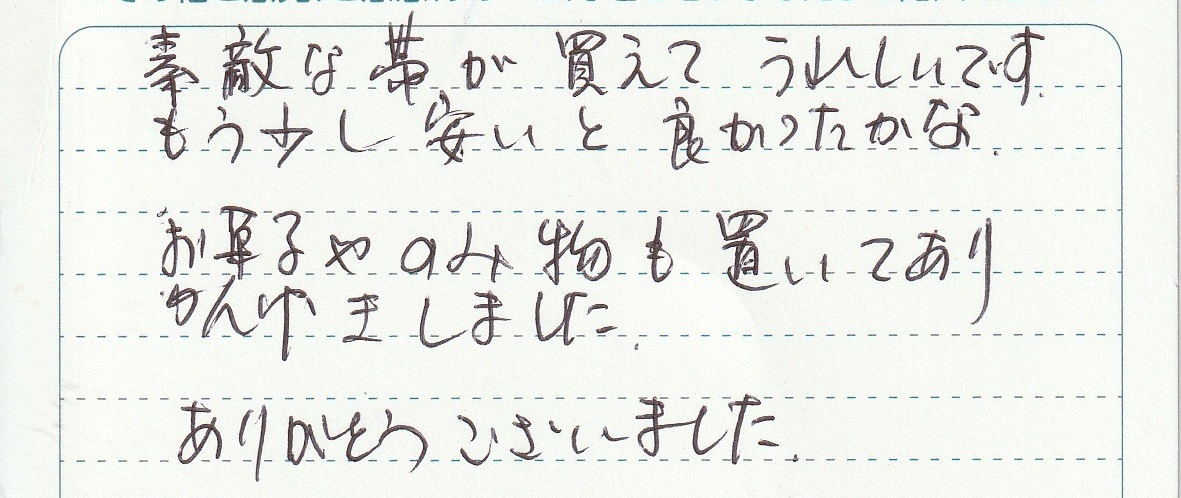 素敵な帯が買えてうれしいです.
もう少し安いと良かったかな.
お菓子やのみ物も置いてあり
かんげきしました.
ありがとうございました.